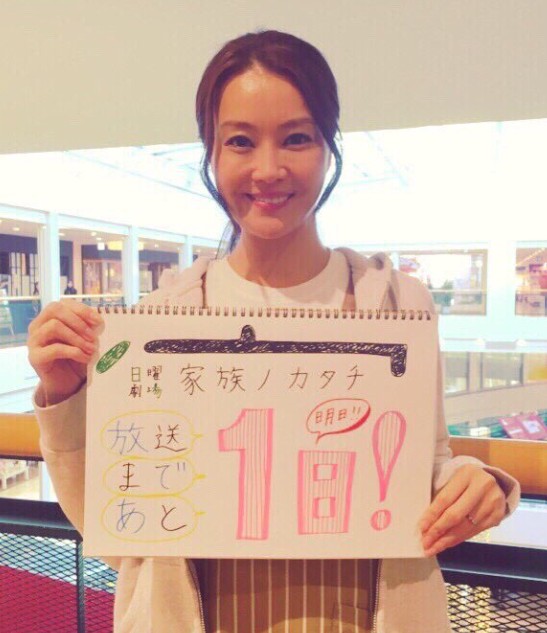 日曜劇場 家族ノカタチ
放送
まで
あと
1日!
明日!!